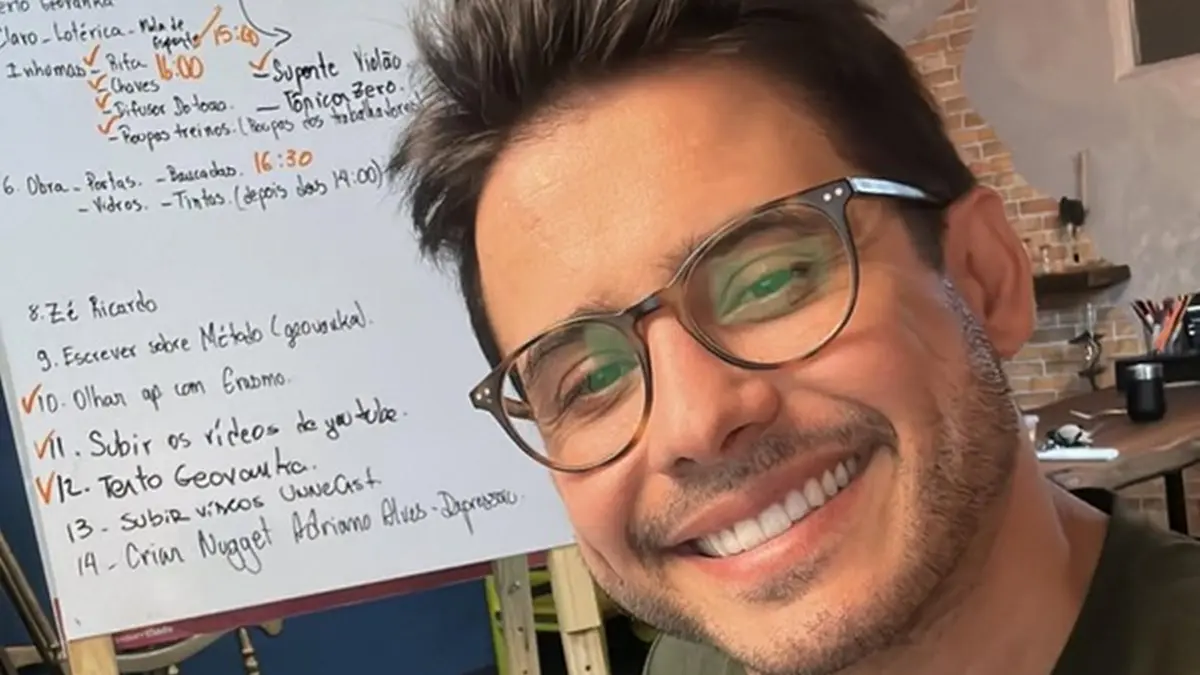 Geovanka
Claro - Lotérica - Mala de Esporte 15:00
Inhumas - Rifa 16:00 - Suporte Violão
- Chaves - Tônica Zero.
- Difusor Dotoao.
- Roupas treinos. (Roupas dos trabalhadores)
6. Obra - Portas. - Bancadas. 16:30
- Vidros. - Tintas. (depois das 14:00)
8. Zé Ricardo
9. Escrever sobre Método (geovanka).
10. Olhar ap com Erasmo.
11. Subir os vídeos do youtube.
12. Texto Geovanka.
13 - Subir vincos UnneCast
14 - Criar Nugget Adriano Alves - Depressão